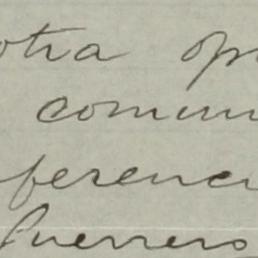 otra op
comun
ferenci
Guerrero